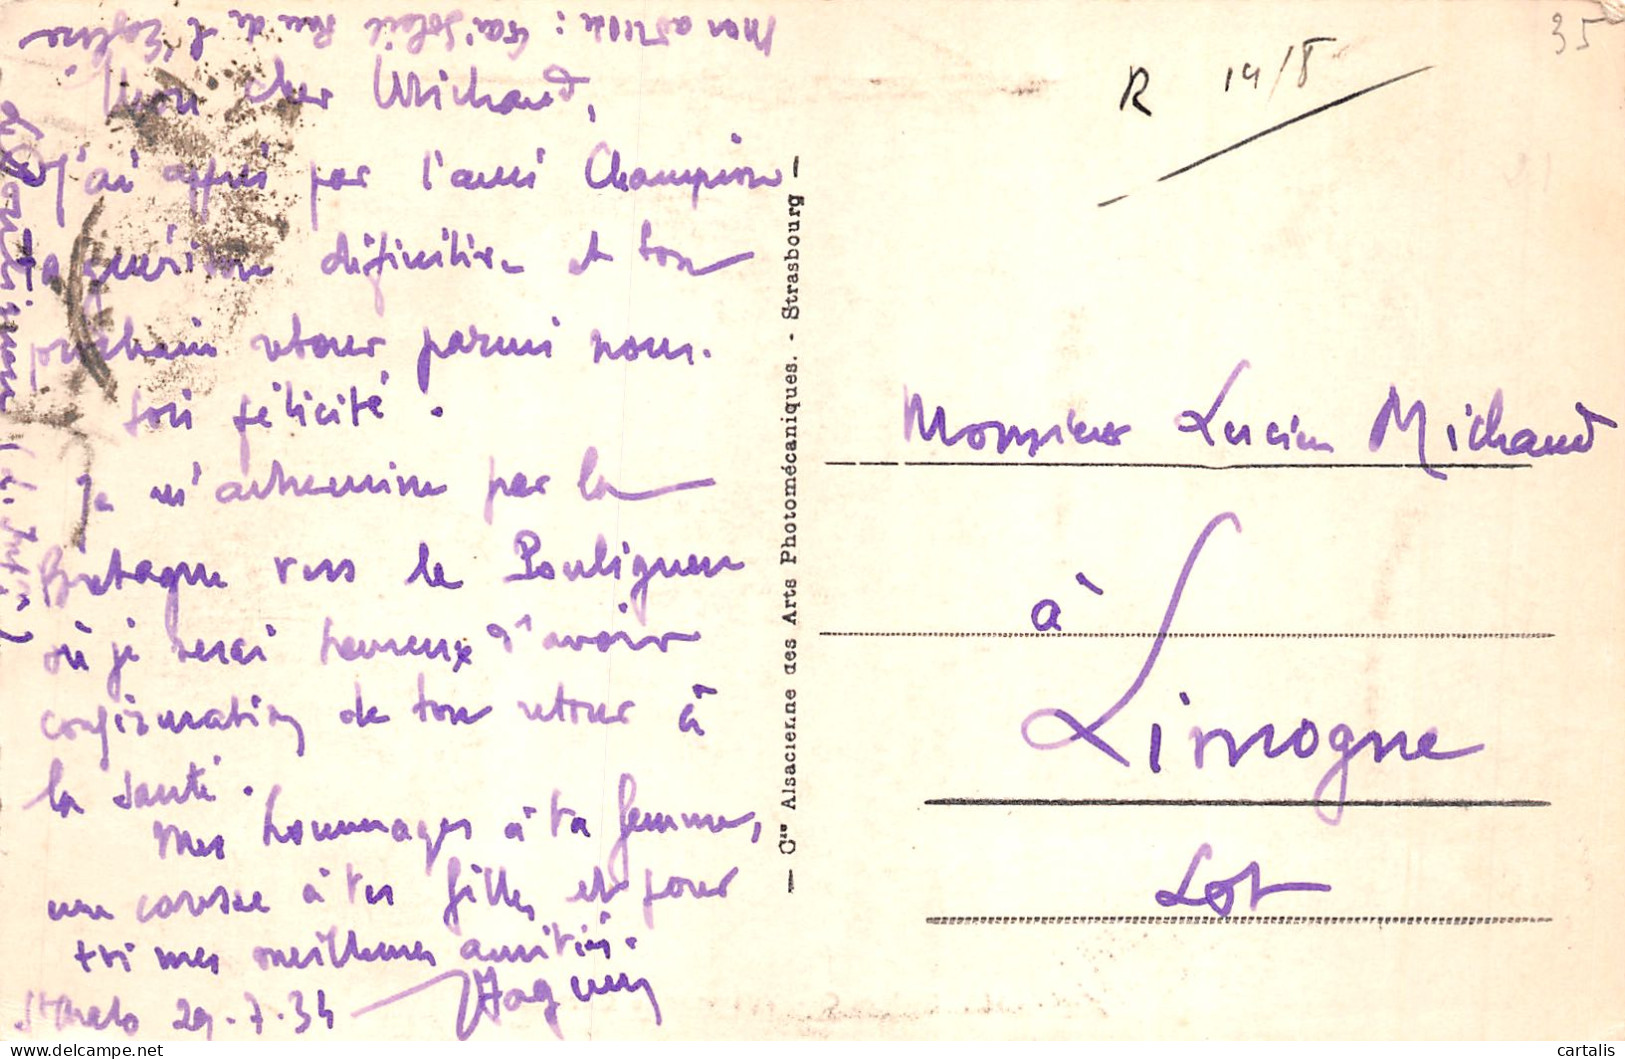 Mon adresse : Gai Soleil Rue de l'Eglise
le Pouliguen (L. Infre)
Mon cher Michaud,
J'ai appris par l'ami Champion
ta guérison définitive et ton
prochain retour parmi nous.
Sois félicité.
Je m'achemine par la
Bretagne vers le Pouliguen
où je serai heureux d'avoir
confirmation de ton retour à
la santé.
Mes hommages à ta femme,
une caresse à tes filles et pour
toi mes meilleures amitiés.
St Malo 29-7-34
— Cie Alsacienne des Arts Photomécaniques. - Strasbourg —
35
R 14/8
Monsieur Lucien Michaud
à
Limogne
Lot
cartalis